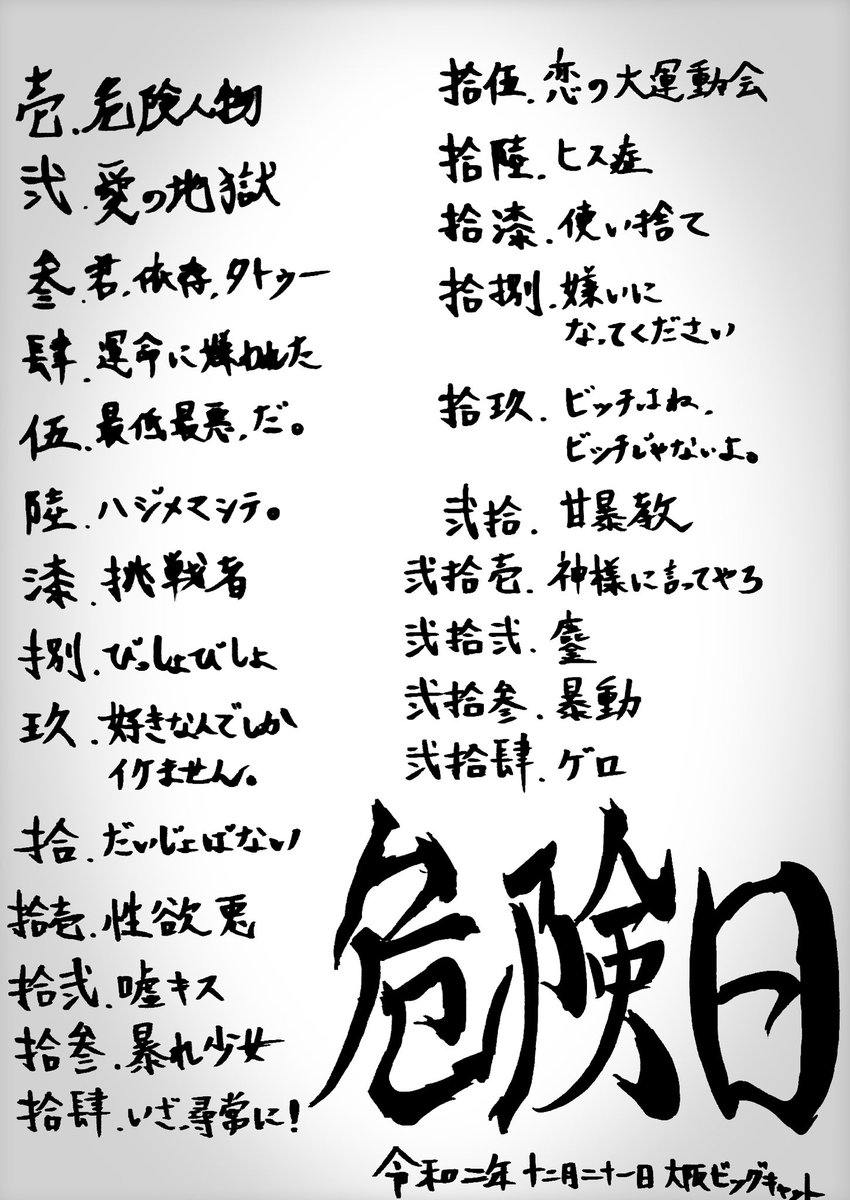 壱.危険人物
弐.愛の地獄
参.君.依存.タトゥー
肆.運命に嫌われた
伍.最低最悪.だ。
陸.ハジメマシテ。
漆.挑戦者
捌.びっしょびしょ
玖.好きな人でしか
イケません。
拾.だいじょばない
拾壱.性欲悪
拾弐.嘘キス
拾参.暴れ少女
拾肆.いざ、尋常に!
拾伍.恋の大運動会
拾陸.ヒス症
拾漆.使い捨て
拾捌.嫌いに
なってください
拾玖.ビッチはね、
ビッチじゃないよ。
弐拾.甘暴教
弐拾壱.神様に言ってやろ
弐拾弐.鏖
弐拾参.暴動
弐拾肆.ゲロ
危険日
令和二年 十二月二十一日 大阪ビッグキャット